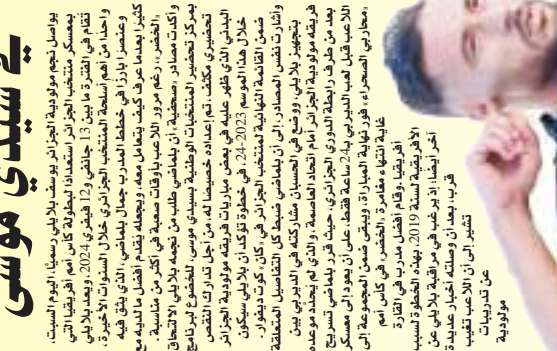 في سيدي موسى
يواصل نجم مولودية الجزائر يوسف بلايلي رسميًا، اليوم السبت،
بمعسكر منتخب الجزائر استعدادا لبطولة كأس أمم إفريقيا التي
تقام في الفترة ما بين 13 جانفي و12 فيفري 2024. ويعد بلايلي
واحدا من أهم أسلحة المنتخب الجزائري خلال السنوات الأخيرة،
وعنصرا بارزا في خطط المدرب جمال بلماضي، الذي يثق فيه
كثيرا بعدما عرف كيف يتعامل معه، ويجعله يقدم أفضل ما لديه مع
«الخضر»، رغم مرور اللاعب بأوقات صعبة في أكثر من مناسبة.
وأكدت مصادر «صحفية»، أن بلماضي طلب من نجمه بلايلي الالتحاق
بمركز تحضير المنتخبات الوطنية بسيدي موسى، للخضوع لبرنامج
تحضيري مكثف، تم إعداده خصيصا له، من أجل تدارك النقص
البدني الذي ظهر عليه في بعض مباريات فريقه مولودية الجزائر
خلال هذا الموسم 2023-24، في خطوة تؤكد أن بلايلي سيكون
ضمن القائمة النهائية لمنتخب الجزائر في «كان» كوت ديفوار.
وأشارت نفس المصادر، إلى أن بلماضي ضبط كل التفاصيل المتعلقة
بتجهيز بلايلي، ووضع في الحسبان مشاركته في الديربي بين
فريقه مولودية الجزائر أمام اتحاد العاصمة، والذي لم يحدد موعده
بعد من طرف رابطة الدوري الجزائري، حيث قرر بلماضي تسريح
اللاعب قبل لعب الديربي بـ24 ساعة فقط، على أن يعود إلى معسكر
«محاربي الصحراء» فور نهاية المباراة، ويبقى ضمن المجموعة إلى
غاية انتهاء مغامرة «الخضر» في كأس أمم
أفريقيا. وقام أفضل مدرب في القارة
الأفريقية لسنة 2019، بهذه الخطوة لسبب
آخر أيضا، إذ يرغب في مراقبة بلايلي عن
قرب، بعد أن وصلته أخبار عديدة
تشير إلى أن اللاعب تغيب
عن تدريبات
مولودية